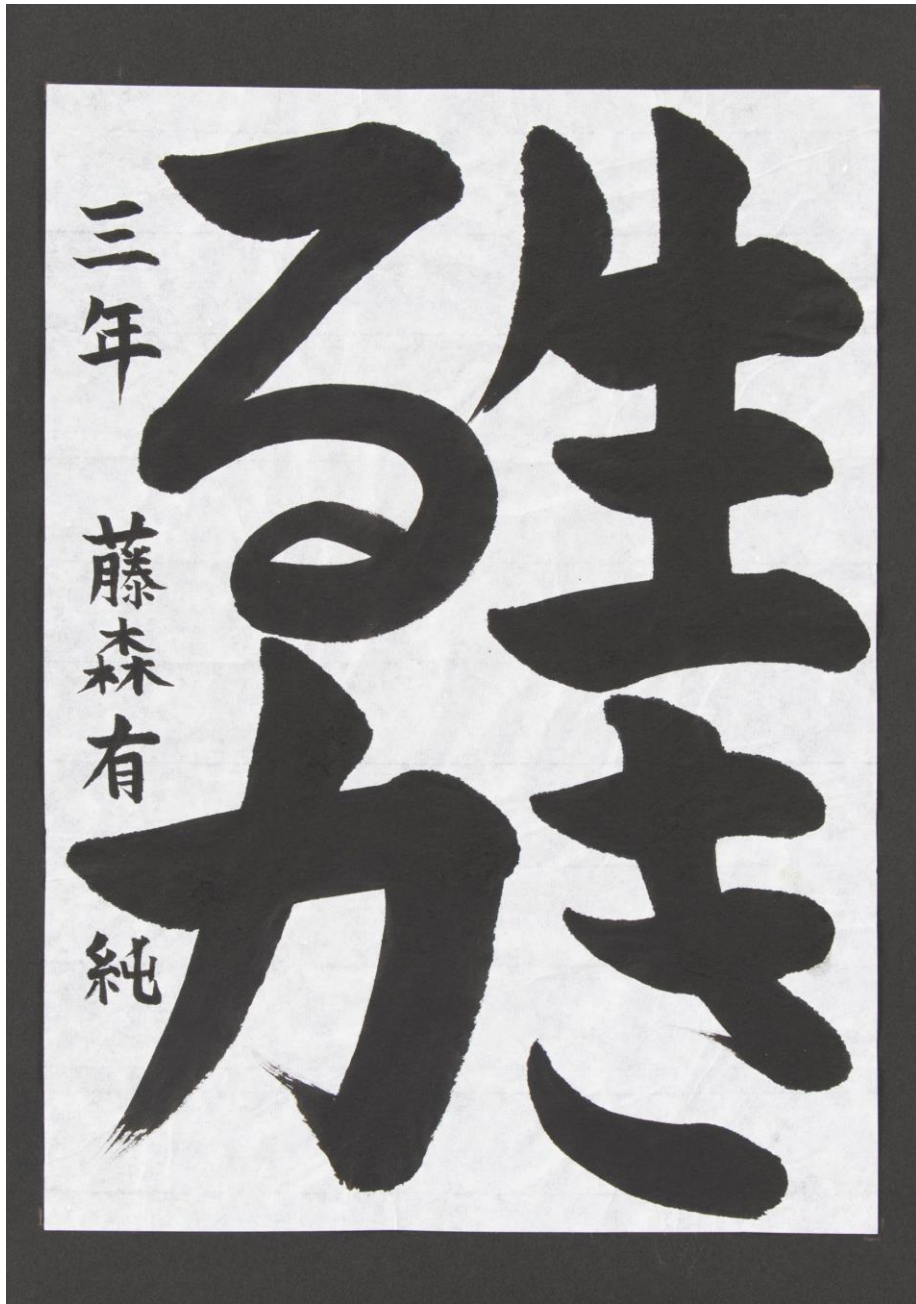 生き
る力
三年 藤森有純